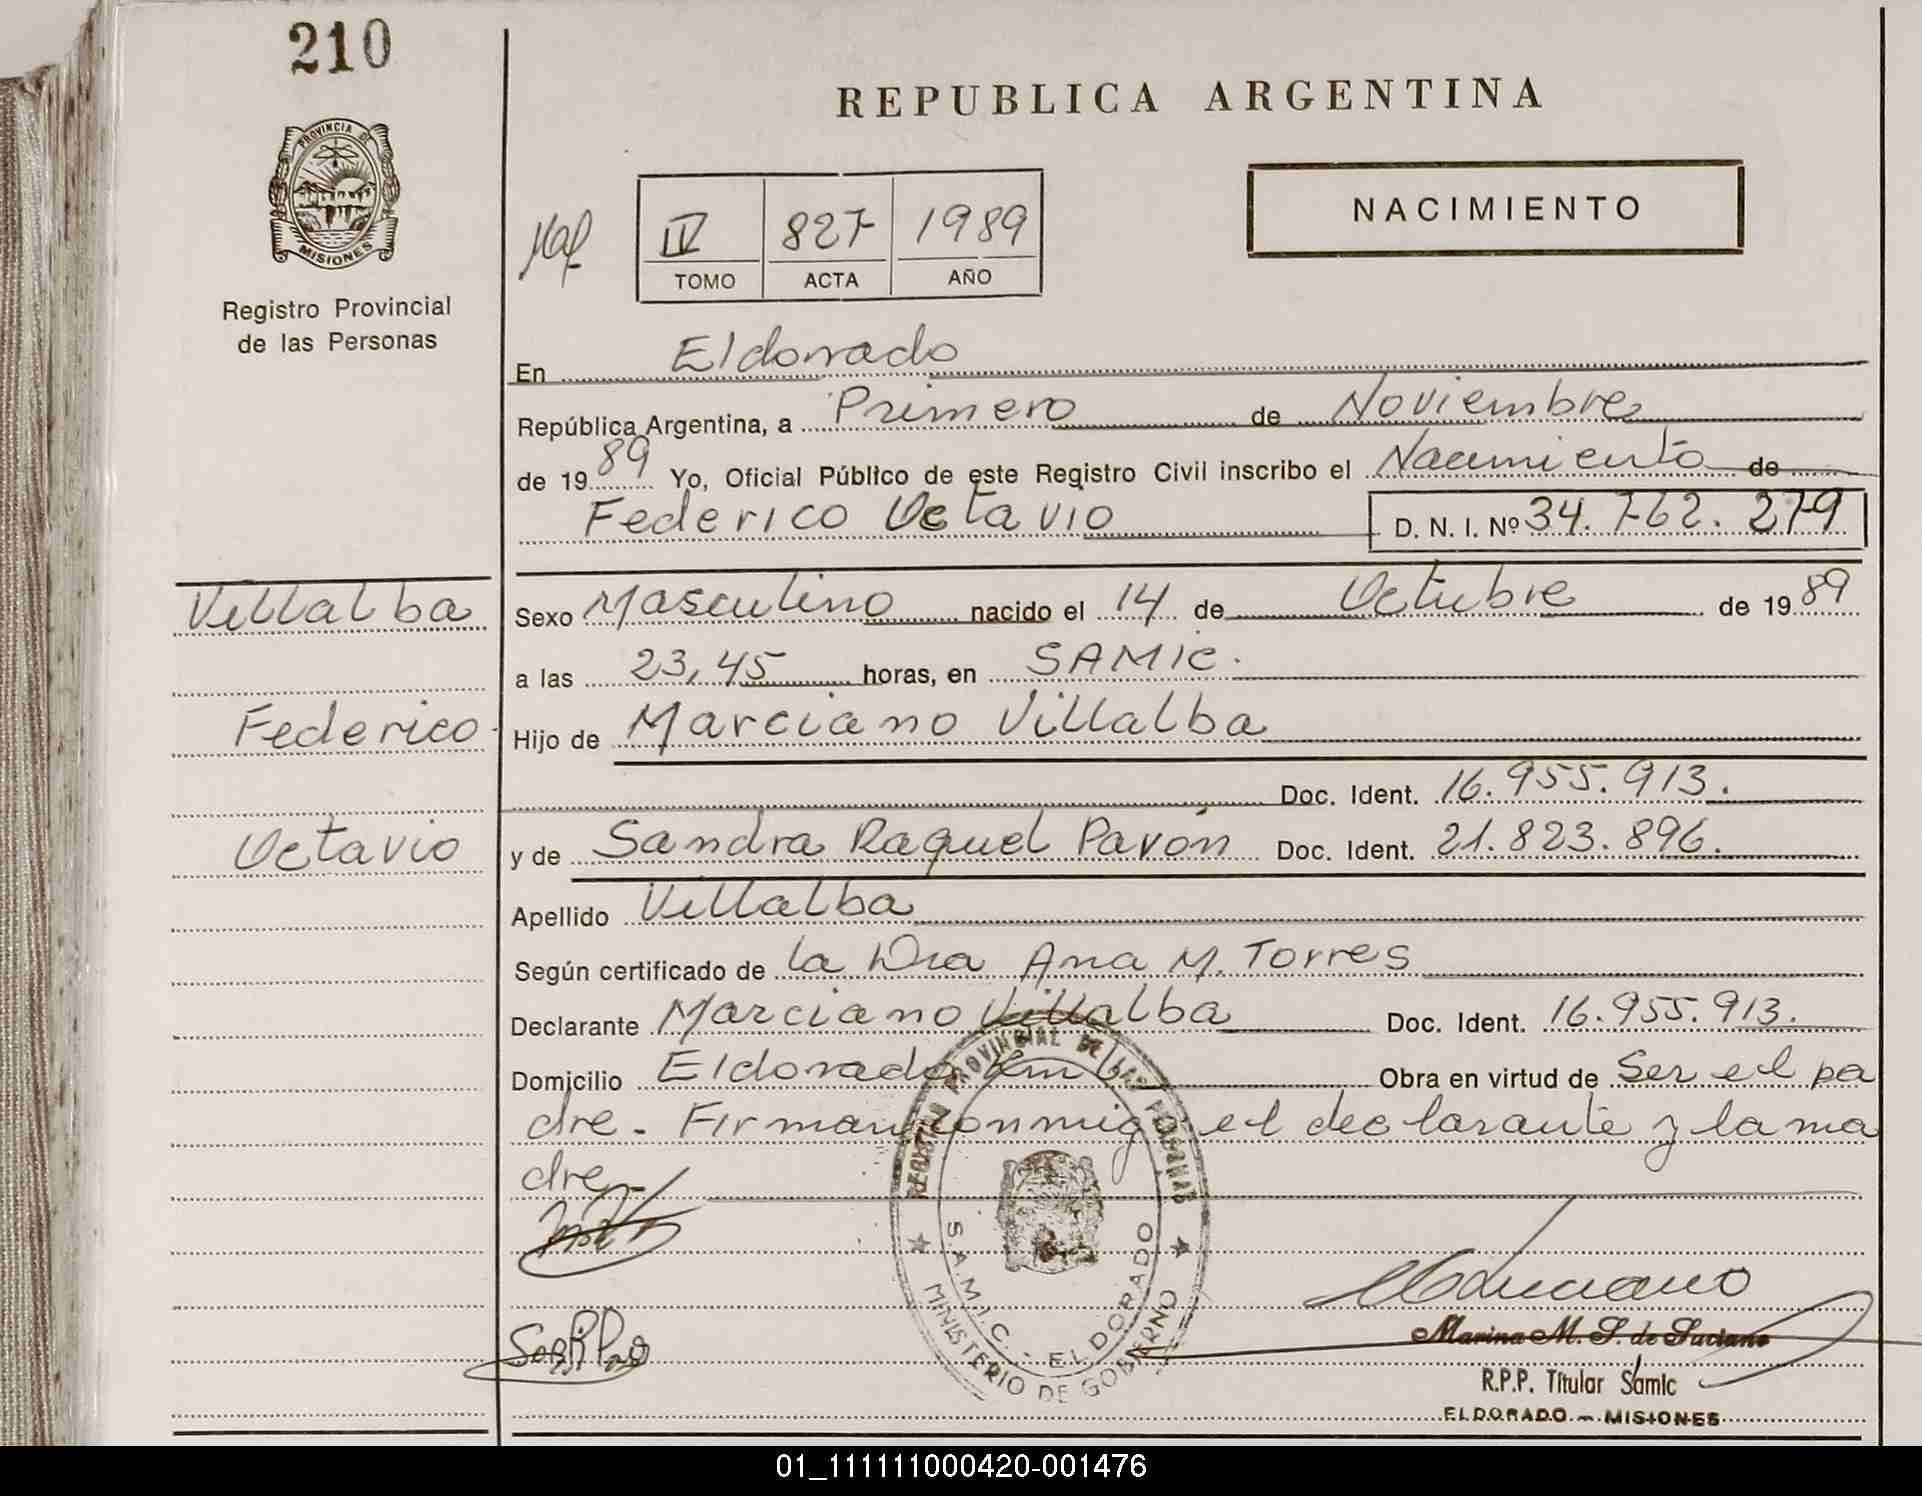 210
PROVINCIA DE
MISIONES
Registro Provincial
de las Personas
REPUBLICA ARGENTINA
NACIMIENTO
IV 827 1989
TOMO ACTA AÑO
En Eldorado
República Argentina, a Primero de Noviembre
de 1989 Yo, Oficial Público de este Registro Civil inscribo el Nacimiento de
Federico Octavio D. N. I. Nº 34.762.279
Villalba
Federico
Octavio
Sexo Masculino nacido el 14 de Octubre de 1989
a las 23,45 horas, en SAMIC.
Hijo de Marciano Villalba
Doc. Ident. 16.955.913.
y de Sandra Raquel Pavón Doc. Ident. 21.823.896.
Apellido Villalba
Según certificado de la Dra Ana M. Torres
Declarante Marciano Villalba Doc. Ident. 16.955.913.
Domicilio Eldorado Km Obra en virtud de Ser el pa
dre. Firman conmigo el declarante y la ma
dre.-
REGISTRO PROVINCIAL DE LAS PERSONAS
S.A.M.I.C. - ELDORADO
MINISTERIO DE GOBIERNO
Marina M. S. de Luciano
R.P.P. Titular Samic
ELDORADO - MISIONES
01_111111000420-001476